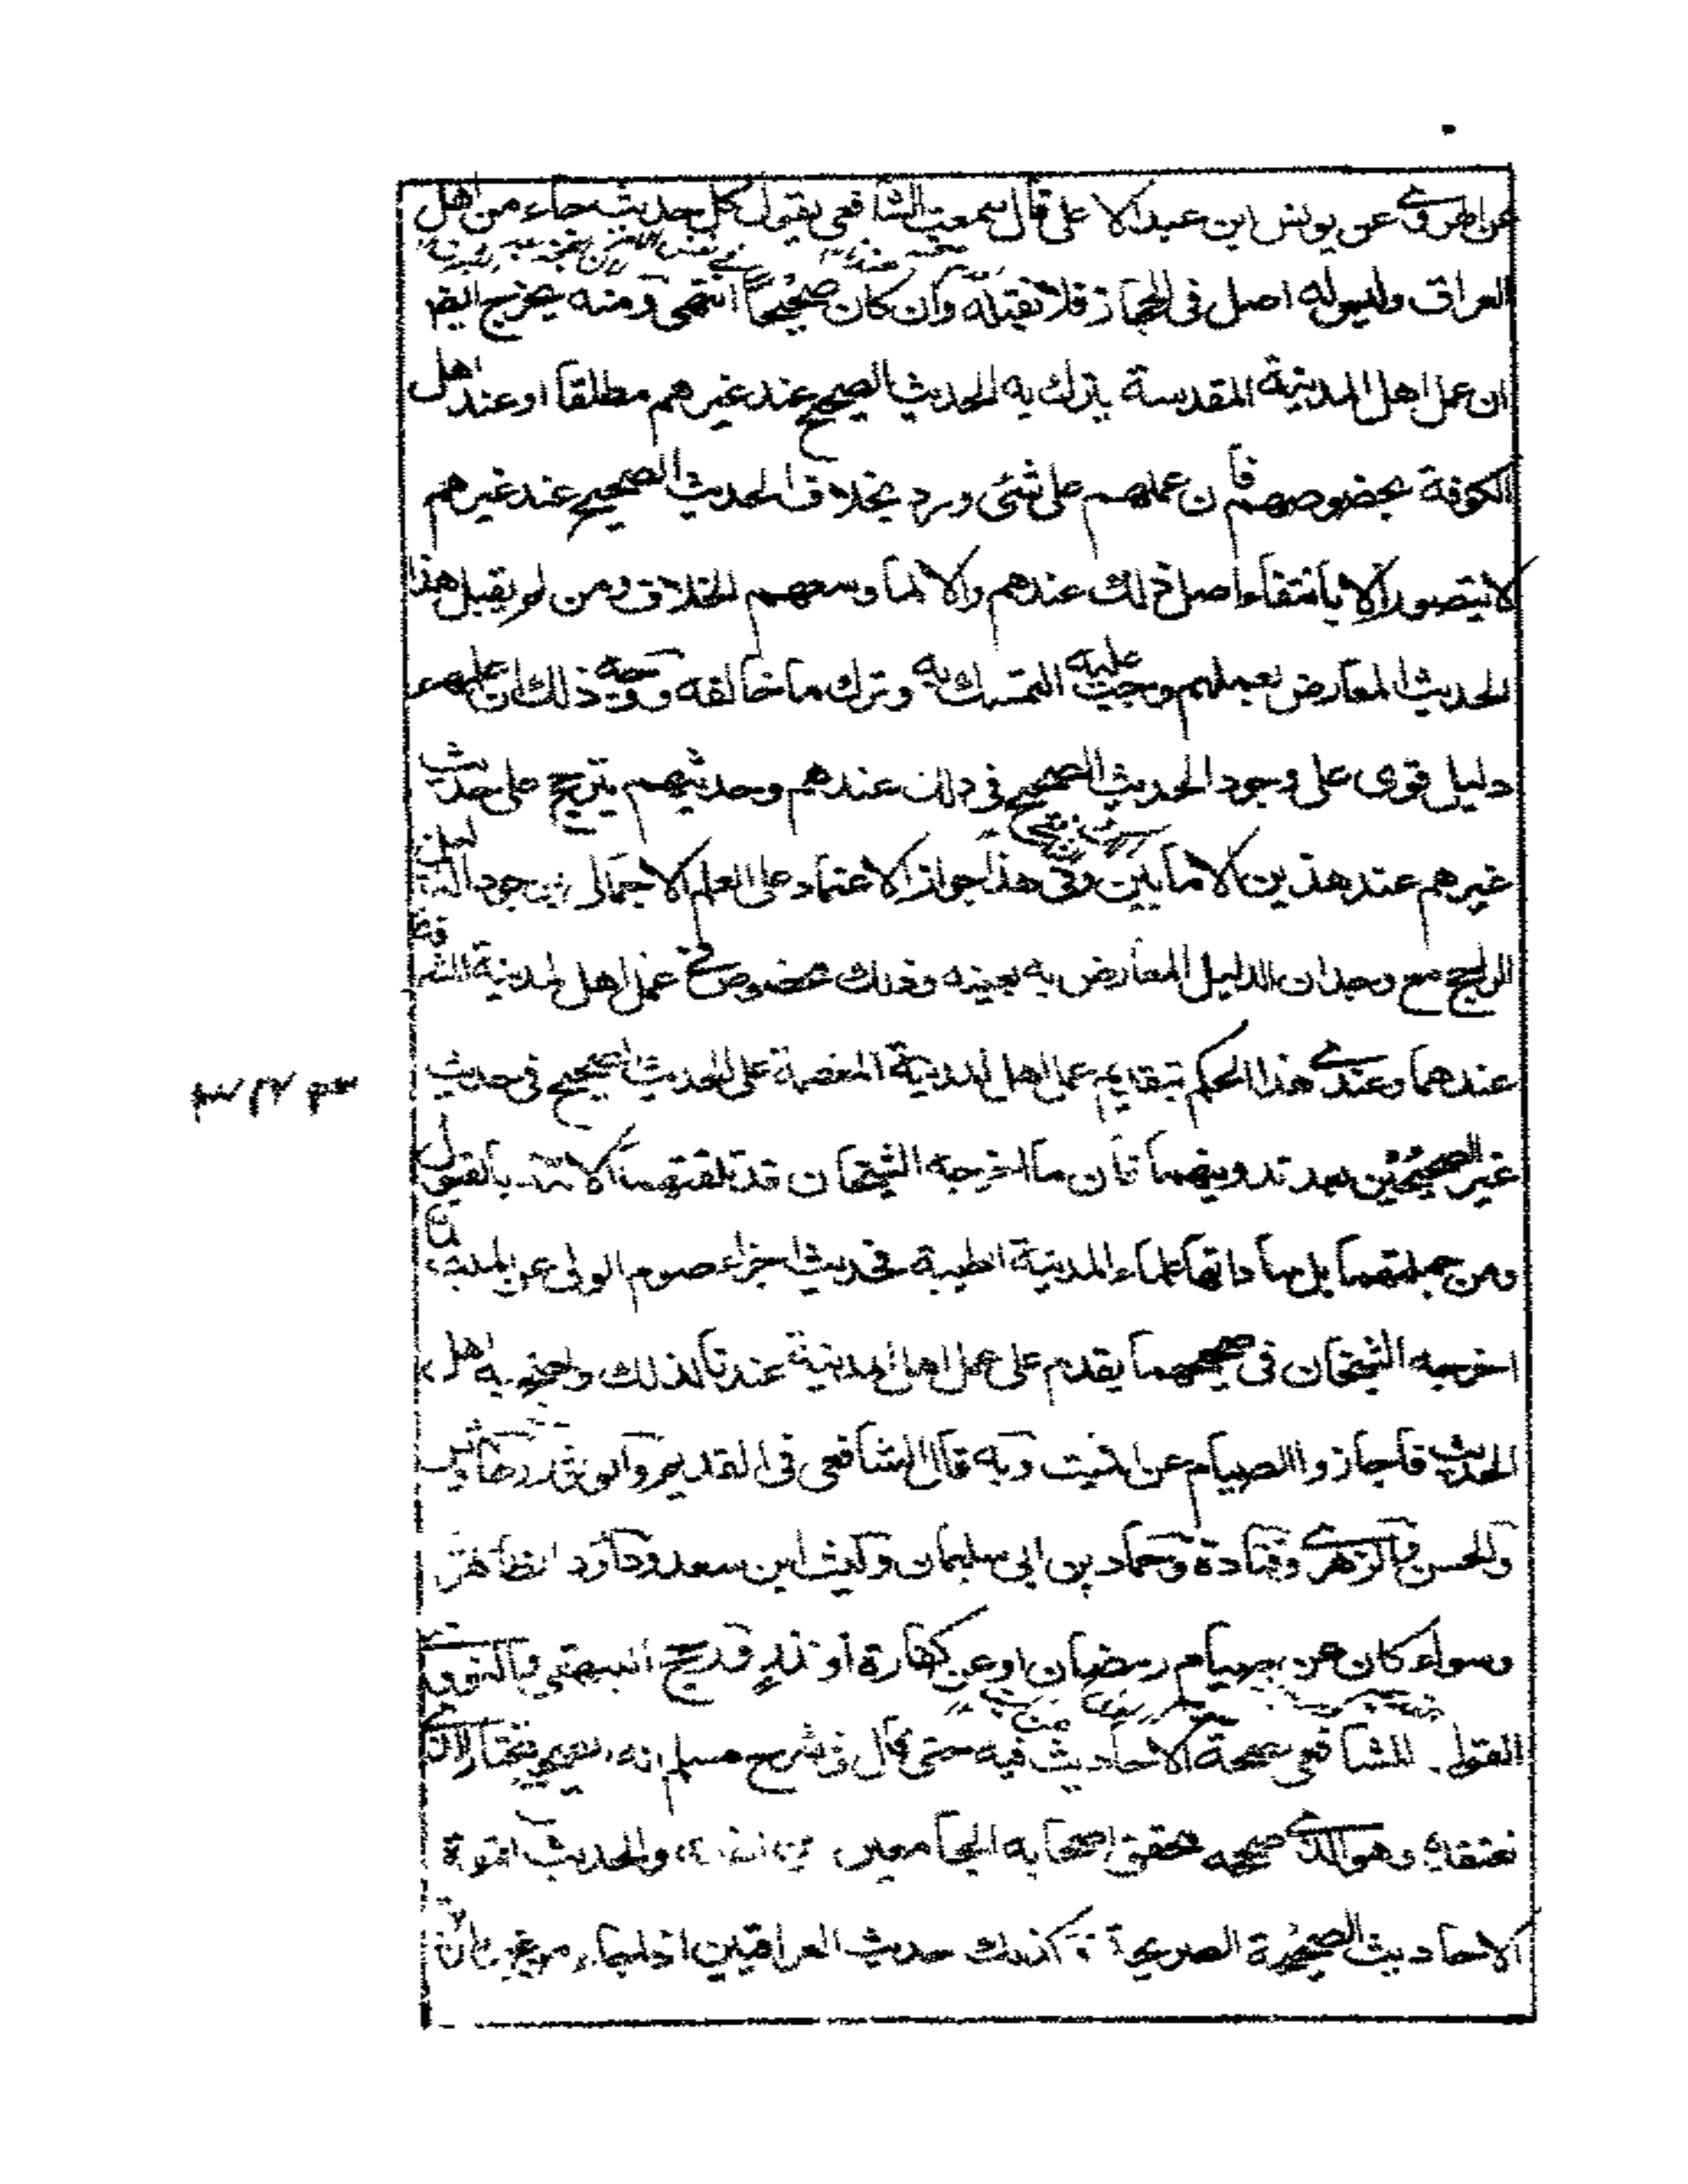 عن الهروي عن يونس ابن عبد الاعلى قال سمعت الشافعي يقول كل حديث جاء من اهل
العراق وليس له اصل في الحجاز فلا تقبله وان كان صحيحاً انتهى ومنه يخرج ايضا
ان عمل اهل المدينة المقدسة يترك به الحديث الصحيح عند غيرهم مطلقاً او عند اهل
الكوفة بخصوصهم فان عملهم على شئ ورد بخلاف الحديث الصحيح عند غيرهم
لا يتصور الا بانتفاء اصل ذلك عندهم والا لما وسعهم الخلاف ومن لم يقبل هذا
الحديث المعارض بعملهم وجب عليه التمسك به وترك ما خالفه ووجه ذلك ان عملهم
دليل قوى على وجود الحديث الصحيح في ذلك عندهم وحديثهم يترجح على حديث
غيرهم عند هذين الامامين وفي هذا جواز الاعتماد على العلم الاجمالى بوجود
الراجح مع وجدان الدليل المعارض به بعينه وذلك مخصوص في عمل اهل المدينة
عندهما وعندي هذا الحكم بتقديم عمل اهل المدينة على الحديث الصحيح في حديث
غير الصحيحين بعد تدوينهما فان ما اخرجه الشيخان قد تلقتهما الامة بالقبول
ومن جملتهما بل علماء المدينة الطيبة فحديث اجزاء صوم الولى عن الميت
اخرجه الشيخان في صحيحهما يقدم على عمل اهل المدينة عندنا لذلك به اهل
الحديث فاجازوا الصيام عن الميت وبه قال الشافعي في القديم وابو ثور وطاوس
والحسن والزهري وقتادة وحماد بن ابي سليمان وليث ابن سعد وداود الظاهري
وسواء كان عن صيام رمضان او عن كفارة او نذر ورجح البيهقي والنووي
القول للشافعي صحة الاحاديث فيه حتى قال في شرح مسلم انه الصحيح المختار الذي
نعتقده وهو الذي صححه محقق اصحابه الجامعين والحديث لقوة
الاحاديث الصحيحة الصريحة كذلك حديث العراقيين